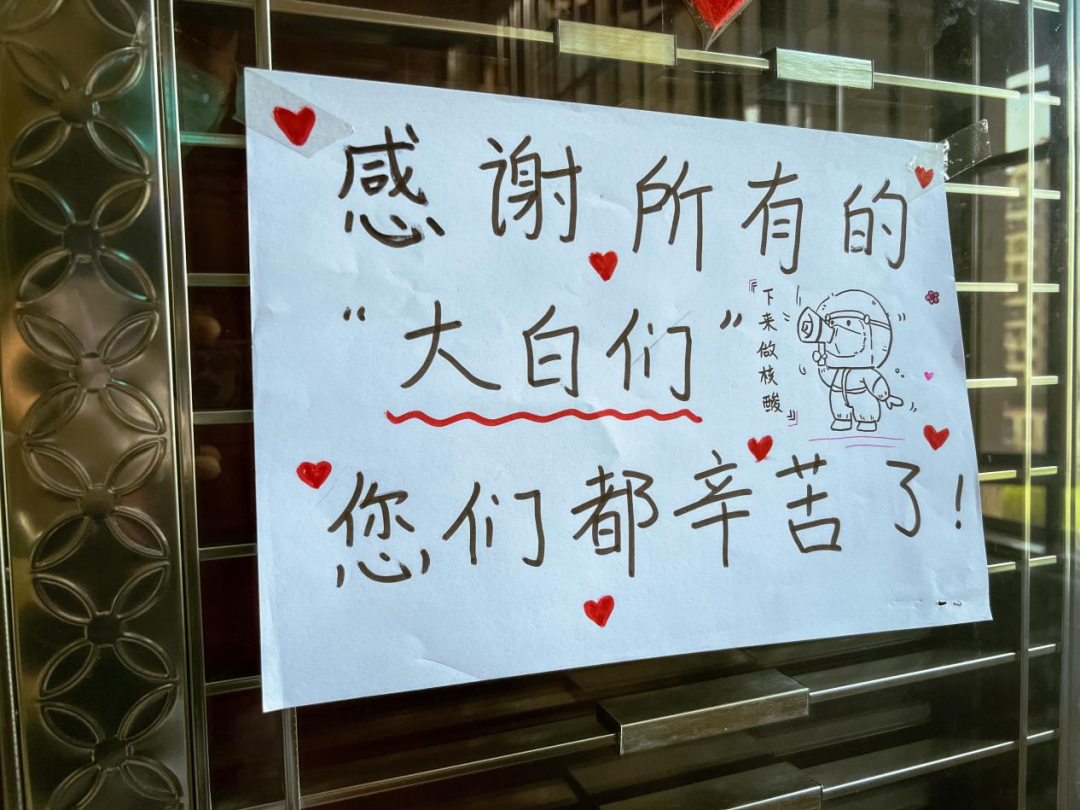 感谢所有的
“大白们”
『下来做核酸』
您们都辛苦了!